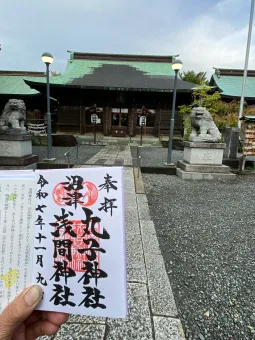 奉拝
丸子神社
沼津
浅間神社
令和七年十一月九